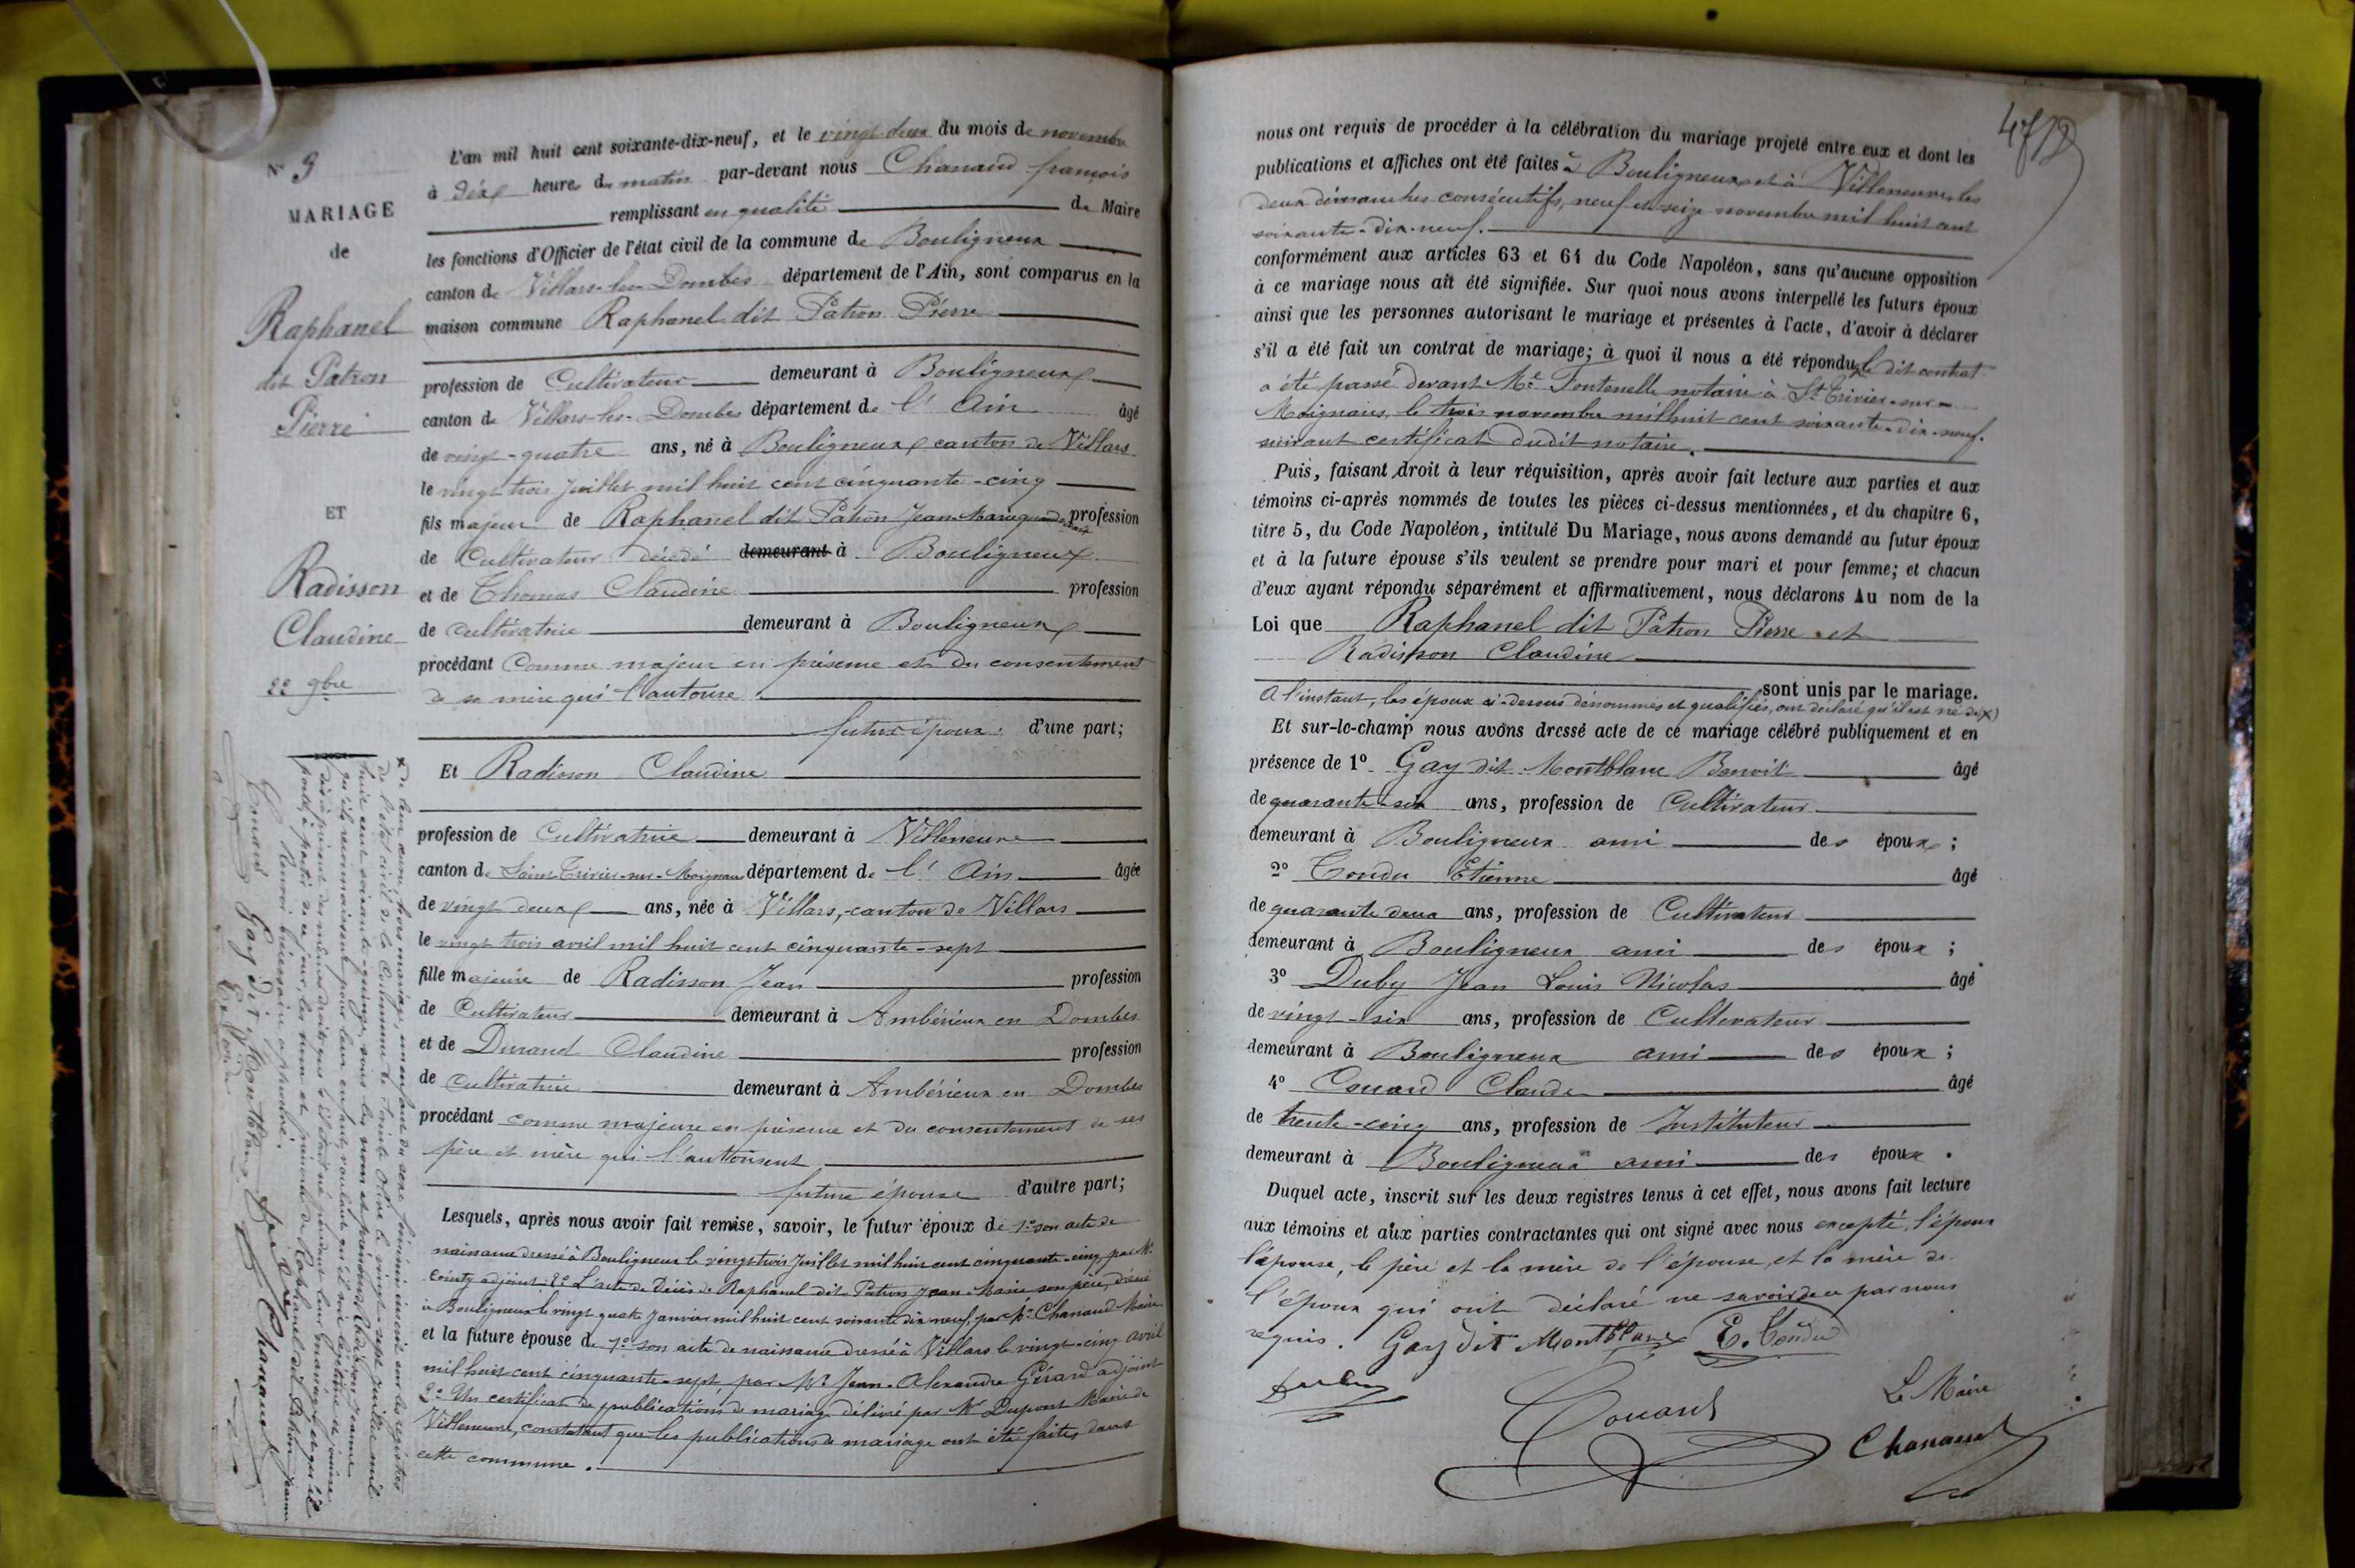 N° 9
MARIAGE
de
Raphanel
dit Patron
Pierre
ET
Radisson
Claudine
22 9bre
L'an mil huit cent soixante-dix-neuf, et le vingt-deux du mois de novembre
à dix heures du matin par-devant nous Chanaud françois
remplissant en qualité de Maire
les fonctions d'Officier de l'état civil de la commune de Bouligneux
canton de Villars-les-Dombes département de l'Ain, sont comparus en la
maison commune Raphanel dit Patron Pierre
profession de Cultivateur demeurant à Bouligneux
canton de Villars-les-Dombes département de l'Ain âgé
de vingt-quatre ans, né à Bouligneux canton de Villars
le vingt trois juillet mil huit cent cinquante-cinq
fils majeur de Raphanel dit Patron Jean-Marie quand vivait profession
de Cultivateur décédé demeurant à Bouligneux
et de Thomas Claudine profession
de cultivatrice demeurant à Bouligneux
procédant comme majeur en présence et du consentement
de sa mère qui l'autorise
futur époux d'une part;
Et Radisson Claudine
profession de Cultivatrice demeurant à Villeneuve
canton de Saint-Trivier-sur-Moignans département de l'Ain âgée
de vingt deux ans, née à Villars, canton de Villars
le vingt trois avril mil huit cent cinquante-sept
fille majeure de Radisson Jean profession
de Cultivateur demeurant à Ambérieux en Dombes
et de Durand Claudine profession
de cultivatrice demeurant à Ambérieux en Dombes
procédant comme majeure en présence et du consentement de ses
père et mère qui l'autorisent
future épouse d'autre part;
Lesquels, après nous avoir fait remise, savoir, le futur époux de 1° son acte de
naissance dressé à Bouligneux le vingt trois juillet mil huit cent cinquante-cinq par Mr
adjoint; 2° L'acte de Décès de Raphanel dit Patron Jean-Marie son père, dressé
à Bouligneux le vingt quatre janvier mil huit cent soixante dix neuf, par Mr Chanaud Maire
et la future épouse de 1° son acte de naissance dressé à Villars le vingt-cinq avril
mil huit cent cinquante-sept, par Mr Jean-Alexandre Girard adjoint
2° Un certificat de publications de mariage délivré par Mr Dupont Maire de
Villeneuve, constatant que les publications de mariage ont été faites dans
cette commune.
x de leur union, hors mariage, un enfant du sexe féminin inscrit sur les registres
de l'état civil de la commune de Sainte Olive le vingt-sept juillet mil
huit cent soixante-quinze, sous les nom et prénoms, Radisson Jeanne
qu'ils reconnaissent pour leur enfant, voulant qu'il soit légitimé et jouisse
dès à présent des mêmes droits que s'il était né pendant leur mariage et qu'il
porte à partir de ce jour, les nom et prénoms de Raphanel dit Patron Jeanne
Renvoi nécessaire approuvé.
Couard Gay dit Montblanc Chanaud
E. Tondu
47
nous ont requis de procéder à la célébration du mariage projeté entre eux et dont les
publications et affiches ont été faites à Bouligneux et à Villeneuve, les
deux dimanches consécutifs, neuf et seize novembre mil huit cent
soixante-dix-neuf.
conformément aux articles 63 et 64 du Code Napoléon, sans qu'aucune opposition
à ce mariage nous ait été signifiée. Sur quoi nous avons interpellé les futurs époux
ainsi que les personnes autorisant le mariage et présentes à l'acte, d'avoir à déclarer
s'il a été fait un contrat de mariage; à quoi il nous a été répondu, le dit contrat
a été passé devant Me Fontenelle notaire à St Trivier-sur-
Moignans, le trois novembre mil huit cent soixante-dix-neuf.
suivant certificat dudit notaire.
Puis, faisant droit à leur réquisition, après avoir fait lecture aux parties et aux
témoins ci-après nommés de toutes les pièces ci-dessus mentionnées, et du chapitre 6,
titre 5, du Code Napoléon, intitulé Du Mariage, nous avons demandé au futur époux
et à la future épouse s'ils veulent se prendre pour mari et pour femme; et chacun
d'eux ayant répondu séparément et affirmativement, nous déclarons Au nom de la
Loi que Raphanel dit Patron Pierre et
Radisson Claudine
sont unis par le mariage.
A l'instant, les époux ci-dessus dénommés et qualifiés, ont déclaré qu'il est né de (x)
Et sur-le-champ nous avons dressé acte de ce mariage célébré publiquement et en
présence de 1° Gay dit Montblanc Benoit âgé
de quarante-six ans, profession de Cultivateur
demeurant à Bouligneux ami des époux;
2° Tondu Etienne âgé
de quarante deux ans, profession de Cultivateur
demeurant à Bouligneux ami des époux;
3° Duby Jean Louis Nicolas âgé
de vingt-six ans, profession de Cultivateur
demeurant à Bouligneux ami des époux;
4° Couard Claude âgé
de trente-cinq ans, profession de Instituteur
demeurant à Bouligneux ami des époux.
Duquel acte, inscrit sur les deux registres tenus à cet effet, nous avons fait lecture
aux témoins et aux parties contractantes qui ont signé avec nous excepté, l'époux
l'épouse, le père et la mère de l'épouse, et la mère de
l'époux qui ont déclaré ne savoir de ce par nous
requis. Gay dit Montblanc E. Tondu
Duby
Couard
Le Maire
Chanaud